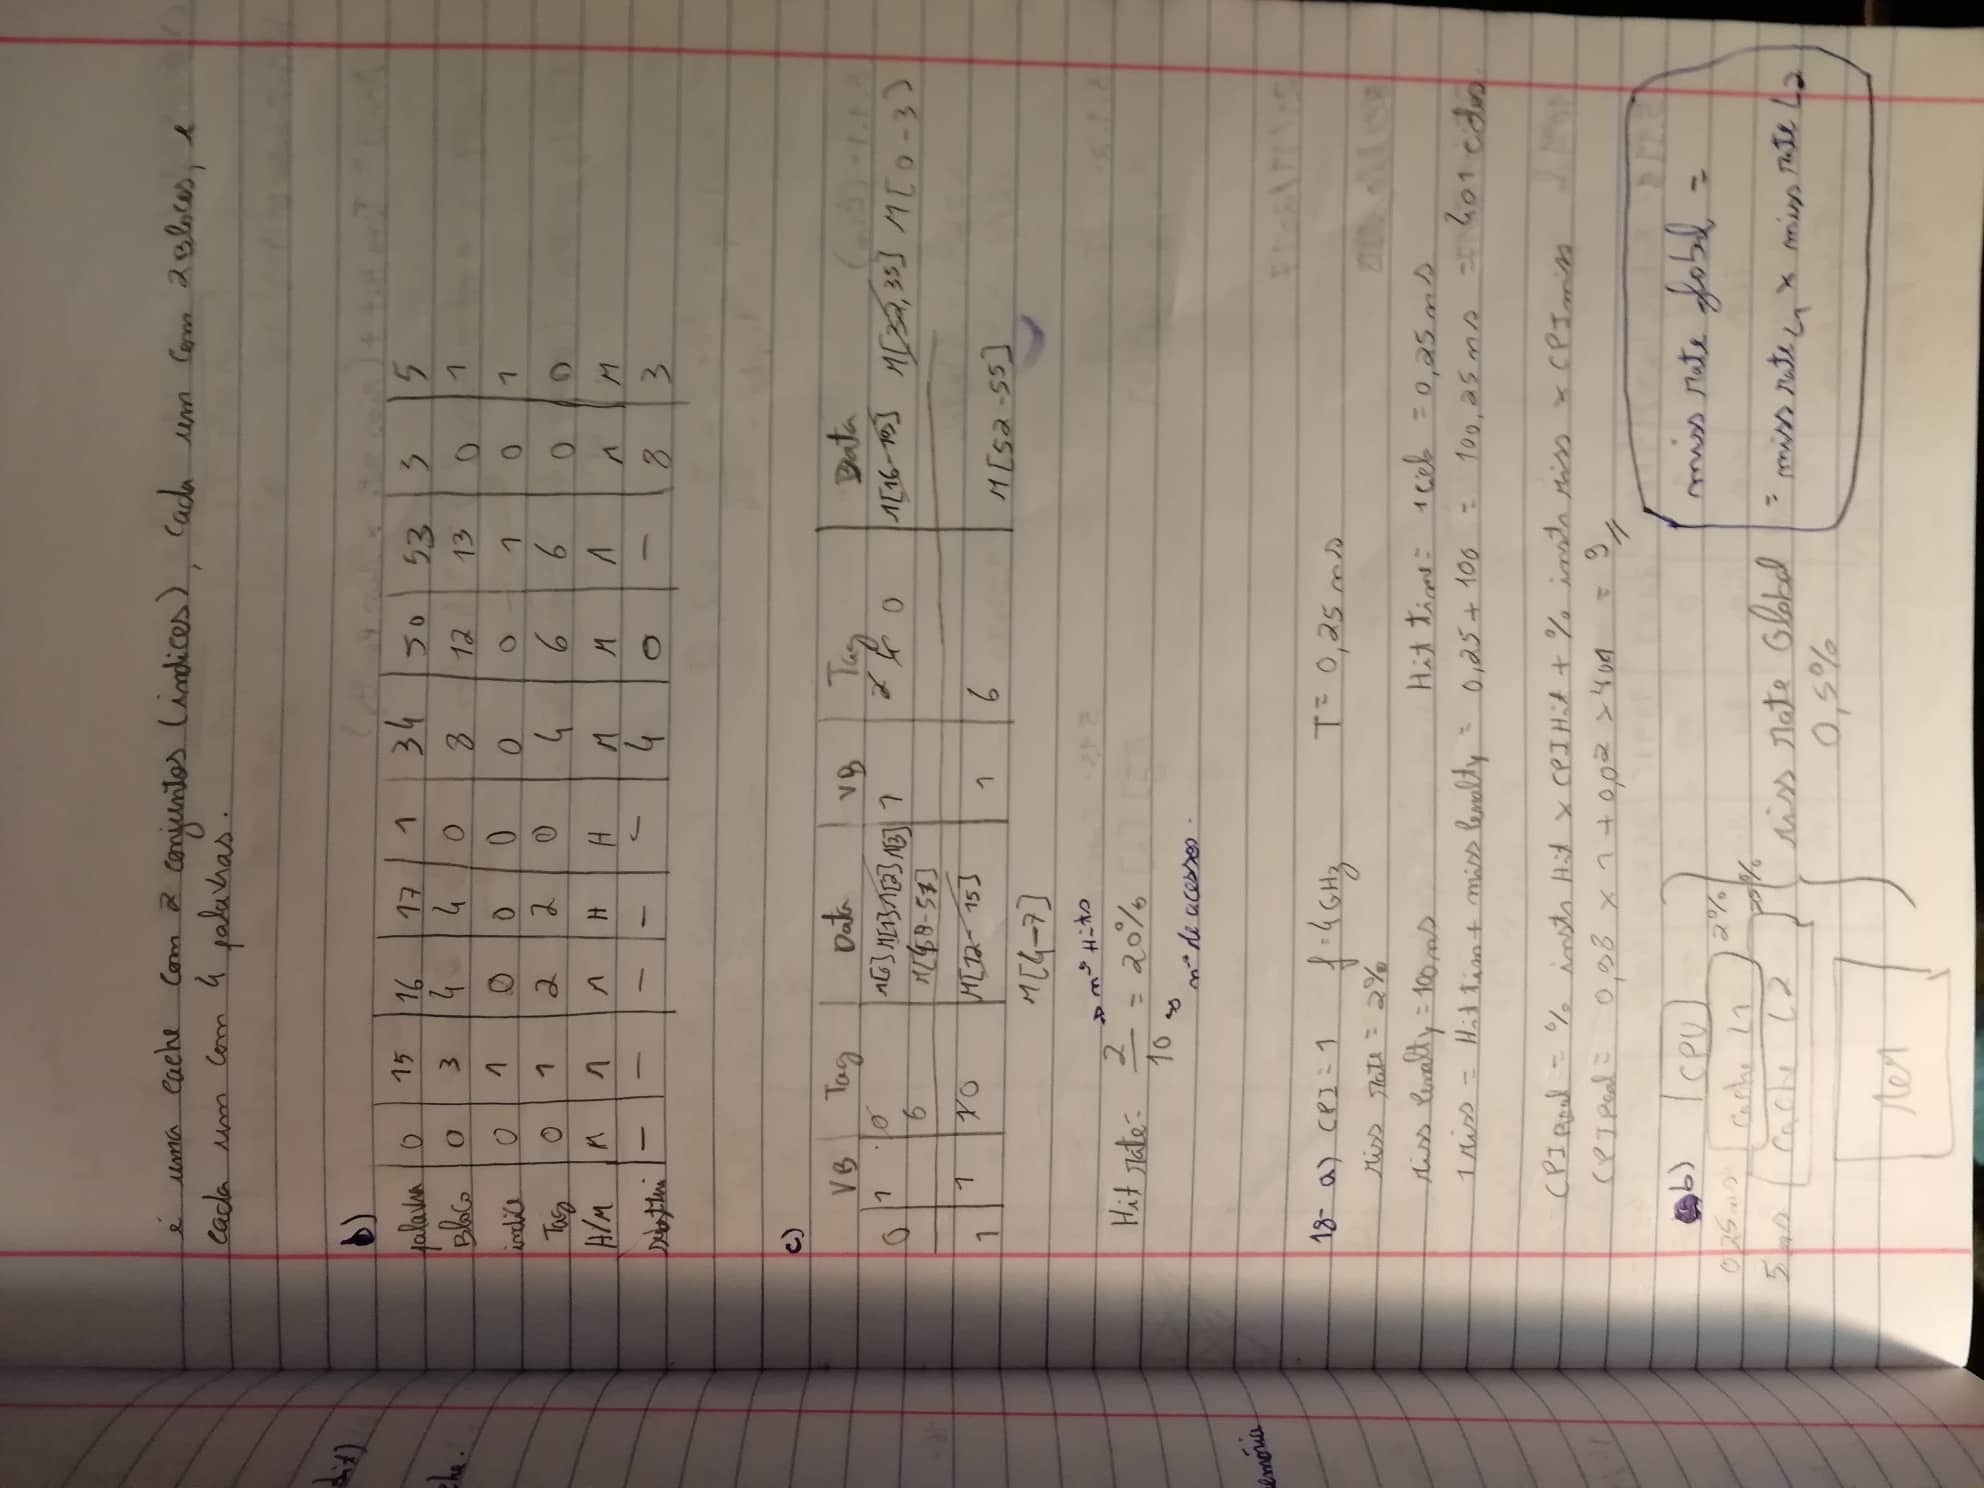 é uma cache com 2 conjuntos (indices), cada um com 2 Blocos, e
cada um com 4 palavras.
b)
palavra 0 15 16 17 1 34 50 53 3 5
Bloco 0 3 4 4 0 8 12 13 0 1
indice 0 1 0 0 0 0 0 1 0 1
Tag 0 1 2 2 0 4 6 6 0 0
H/M M M M H H M M M M M
– – – – – 4 0 – 8 3
c)
VB Tag Data VB Tag Data
0 1 0 M[0] M[1] M[2] M[3] 1 2 4 0 M[16-19] M[32,35] M[0-3]
6 M[48-51]
1 1 1 0 M[12-15] 1 6 M[52-55]
M[4-7]
Hit rate: 2/10 = 20%
→ nº Hits
→ nº de acessos.
18- a) CPI = 1 f = 4GHz T = 0,25 ns
Miss rate = 2%
Miss Penalty = 100ns Hit time = 1 ciclo = 0,25 ns
1 Miss = Hit time + miss Penalty = 0,25 + 100 = 100,25 ns = 401 ciclos.
CPI Real = % insts Hit x CPI Hit + % insts Miss x CPI miss
CPI Real = 0,98 x 1 + 0,02 x 401 = 9
b) CPU
0,25 ns Cache L1 2%
5 ns Cache L2
Miss rate Global
0,5%
Mem
miss rate global =
= miss rate L1 x miss rate L2